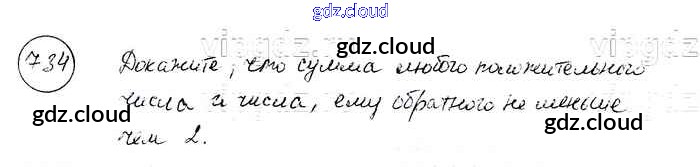 gdz.cloud
734 Докажите, что сумма любого положительного
числа и числа, ему обратного не меньше
чем 2.
gdz.cloud
gdz.cloud
gdz.cloud
gdz.cloud